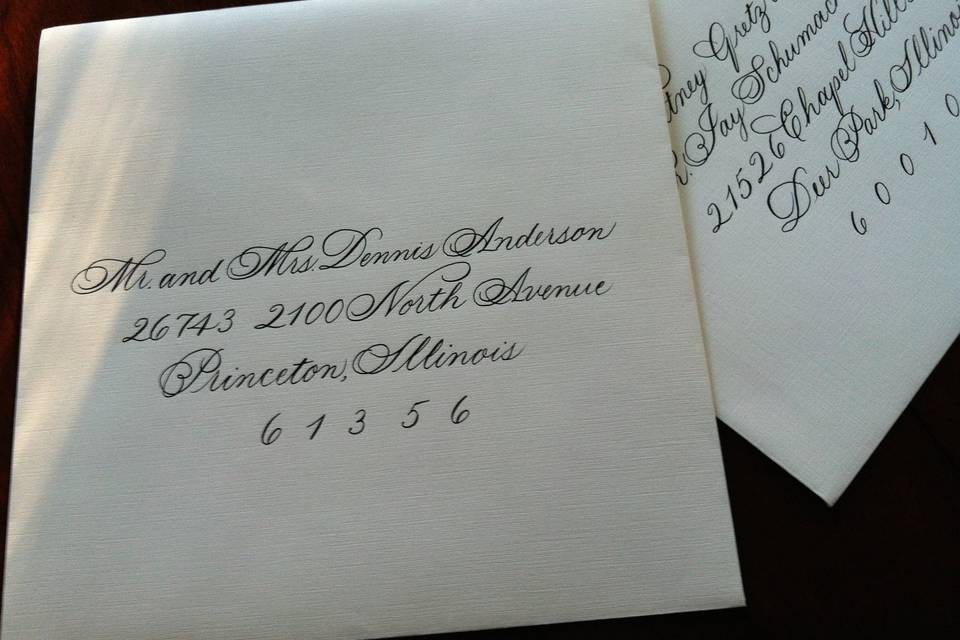 Mr. and Mrs. Dennis Anderson
26743 2100 North Avenue
Princeton, Illinois
6 1 3 5 6
Gretz
Jay
21526 Chapel
Deer Park, Illinois
6 0 0 1 0